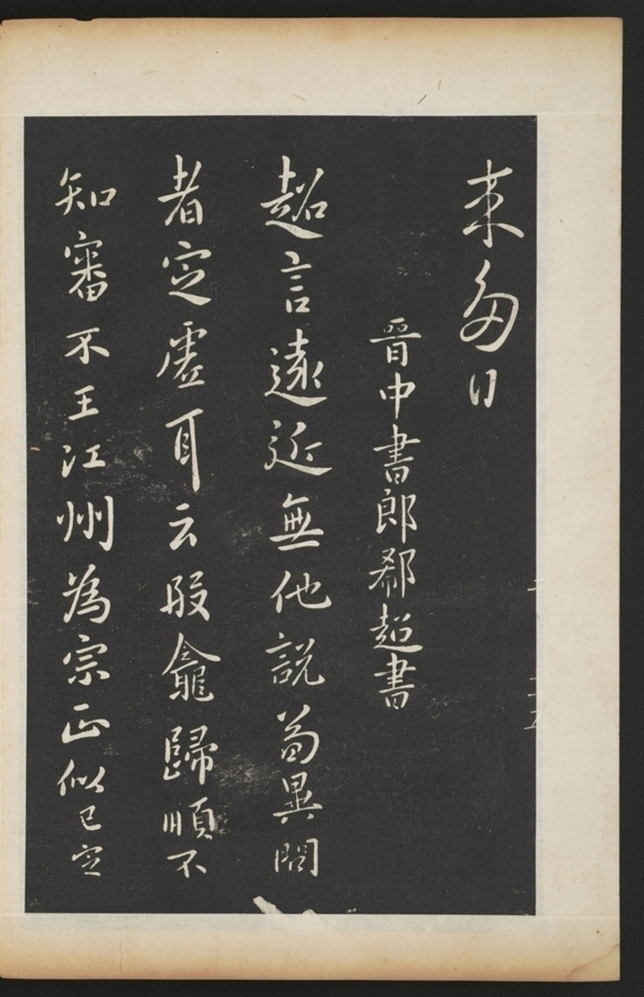 来
日
晉中書郎郗超書
超言遠近無他說為異問
者定虛耳云殷龕歸順不
知審不王江州為宗正似已定